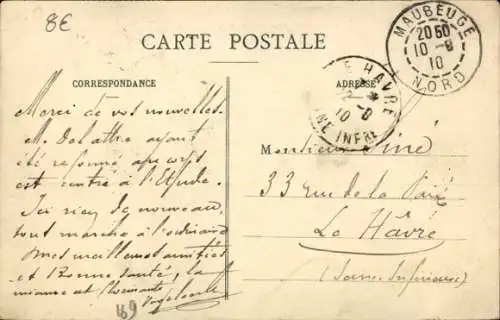 8E
CARTE POSTALE
CORRESPONDANCE
ADRESSE
MAUBEUGE
20 50
10 -8
10
NORD
LE HAVRE
10
Merci de vos nouvelles.
M. Delattre ayant
été réformé
est rentré à l'Etude.
Ici rien de nouveau,
tout marche à l'ordinaire
Mes meilleures amitiés
et bonne santé, la
et Clemente
Monsieur Viné
33 rue de la Paix
Le Hâvre
(Seine Inférieure)
169